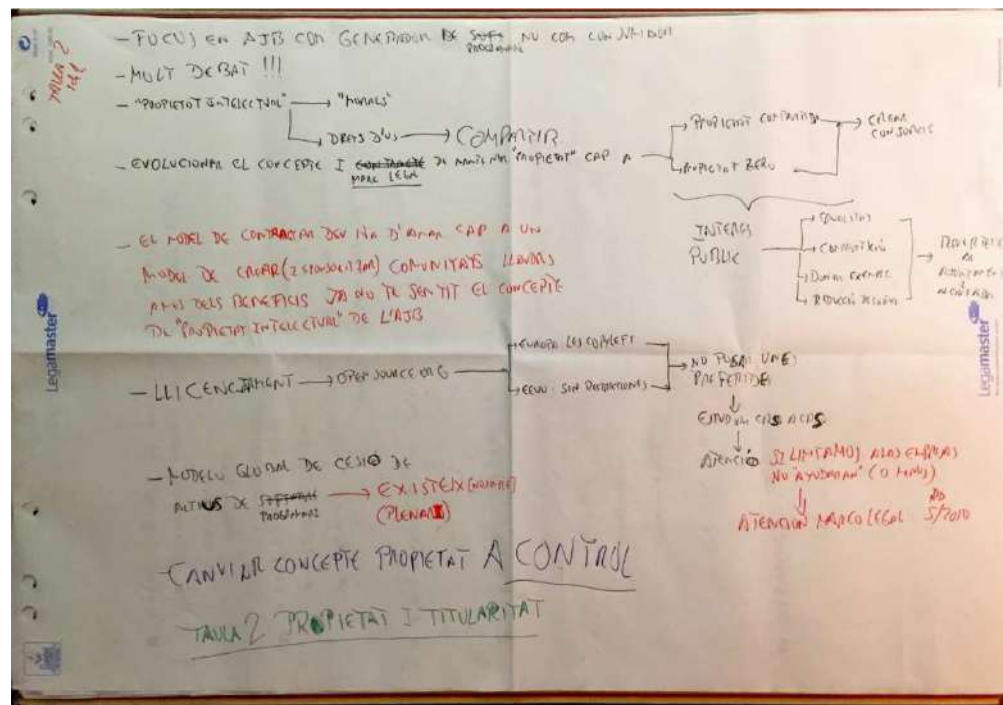 TAULA 2
1 de 1
- FOCUS EN AJB COM GENERADOR DE PROGRAMARI NO COM CONSUMIDOR
- MOLT DEBAT !!!
- "PROPIETAT INTELECTUAL" → "MORALS"
→ DRETS D'US → COMPARTIR
- EVOLUCIONAR EL CONCEPTE I CONTRACTE MARC LEGAL DE "PROPIETAT" CAP A
→ PROPIETAT COMPARTIDA → CREAR CONSORCIS
→ PROPIETAT ZERO
INTERES PUBLIC
→ DONAR EXEMPLE
- EL MODEL DE CONTRACTAR DEU D'ANAR CAP A UN
MODEL DE CREAR (I ESPONSORITZAR) COMUNITATS LLAVORS
DELS BENEFICIS JA NO TE SENTIT EL CONCEPTE
DE "PROPIETAT INTELECTUAL" DE L'AJB
- LLICENCIAMENT → OPEN SOURCE ORG
→ EUROPA LES COPYLEFT
→ EEUU: SIN RESTRICCIONES
→ NO POSAR UNES PREFERIDES
↓
ESTUDIAR CAS A CAS
↓
ATENCIÓ SI LIMITAMOS A LAS EMPRESAS
NO "AYUDARAN" (O MENOS)
↓
ATENCION MARCO LEGAL
- MODELO GLOBAL DE CESIO DE
ACTIUS DE SOFTWARE PROGRAMARI → EXISTEIX
- CANVIAR CONCEPTE PROPIETAT A CONTROL
TAULA 2 PROPIETAT I TITULARITAT
Legamaster
Legamaster